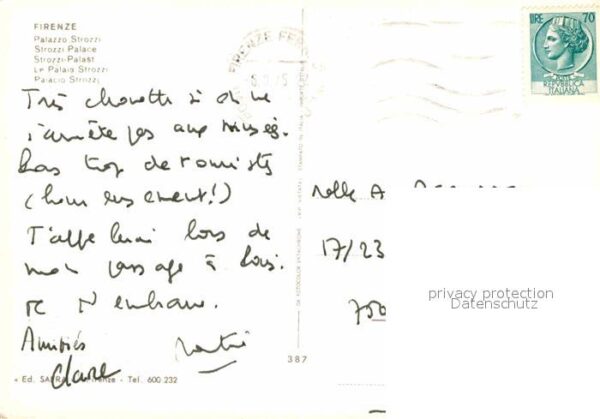 FIRENZE
Palazzo Strozzi
Strozzi Palace
Strozzi-Palast
Le Palais Strozzi
Palacio Strozzi
LIRE 70
REPUBBLICA
ITALIANA
FIRENZE FERR
Très chouette si on ne
s'arrête pas aux musées.
Pas trop de touristes
(heureusement!)
T'appellerai lors de
mon passage à Paris.
Je t'embrasse.
Amitiés
Claire
Melle A.
17/23
750
387
Ed. SAFRA - Firenze - Tel. 600.232
privacy protection
Datenschutz